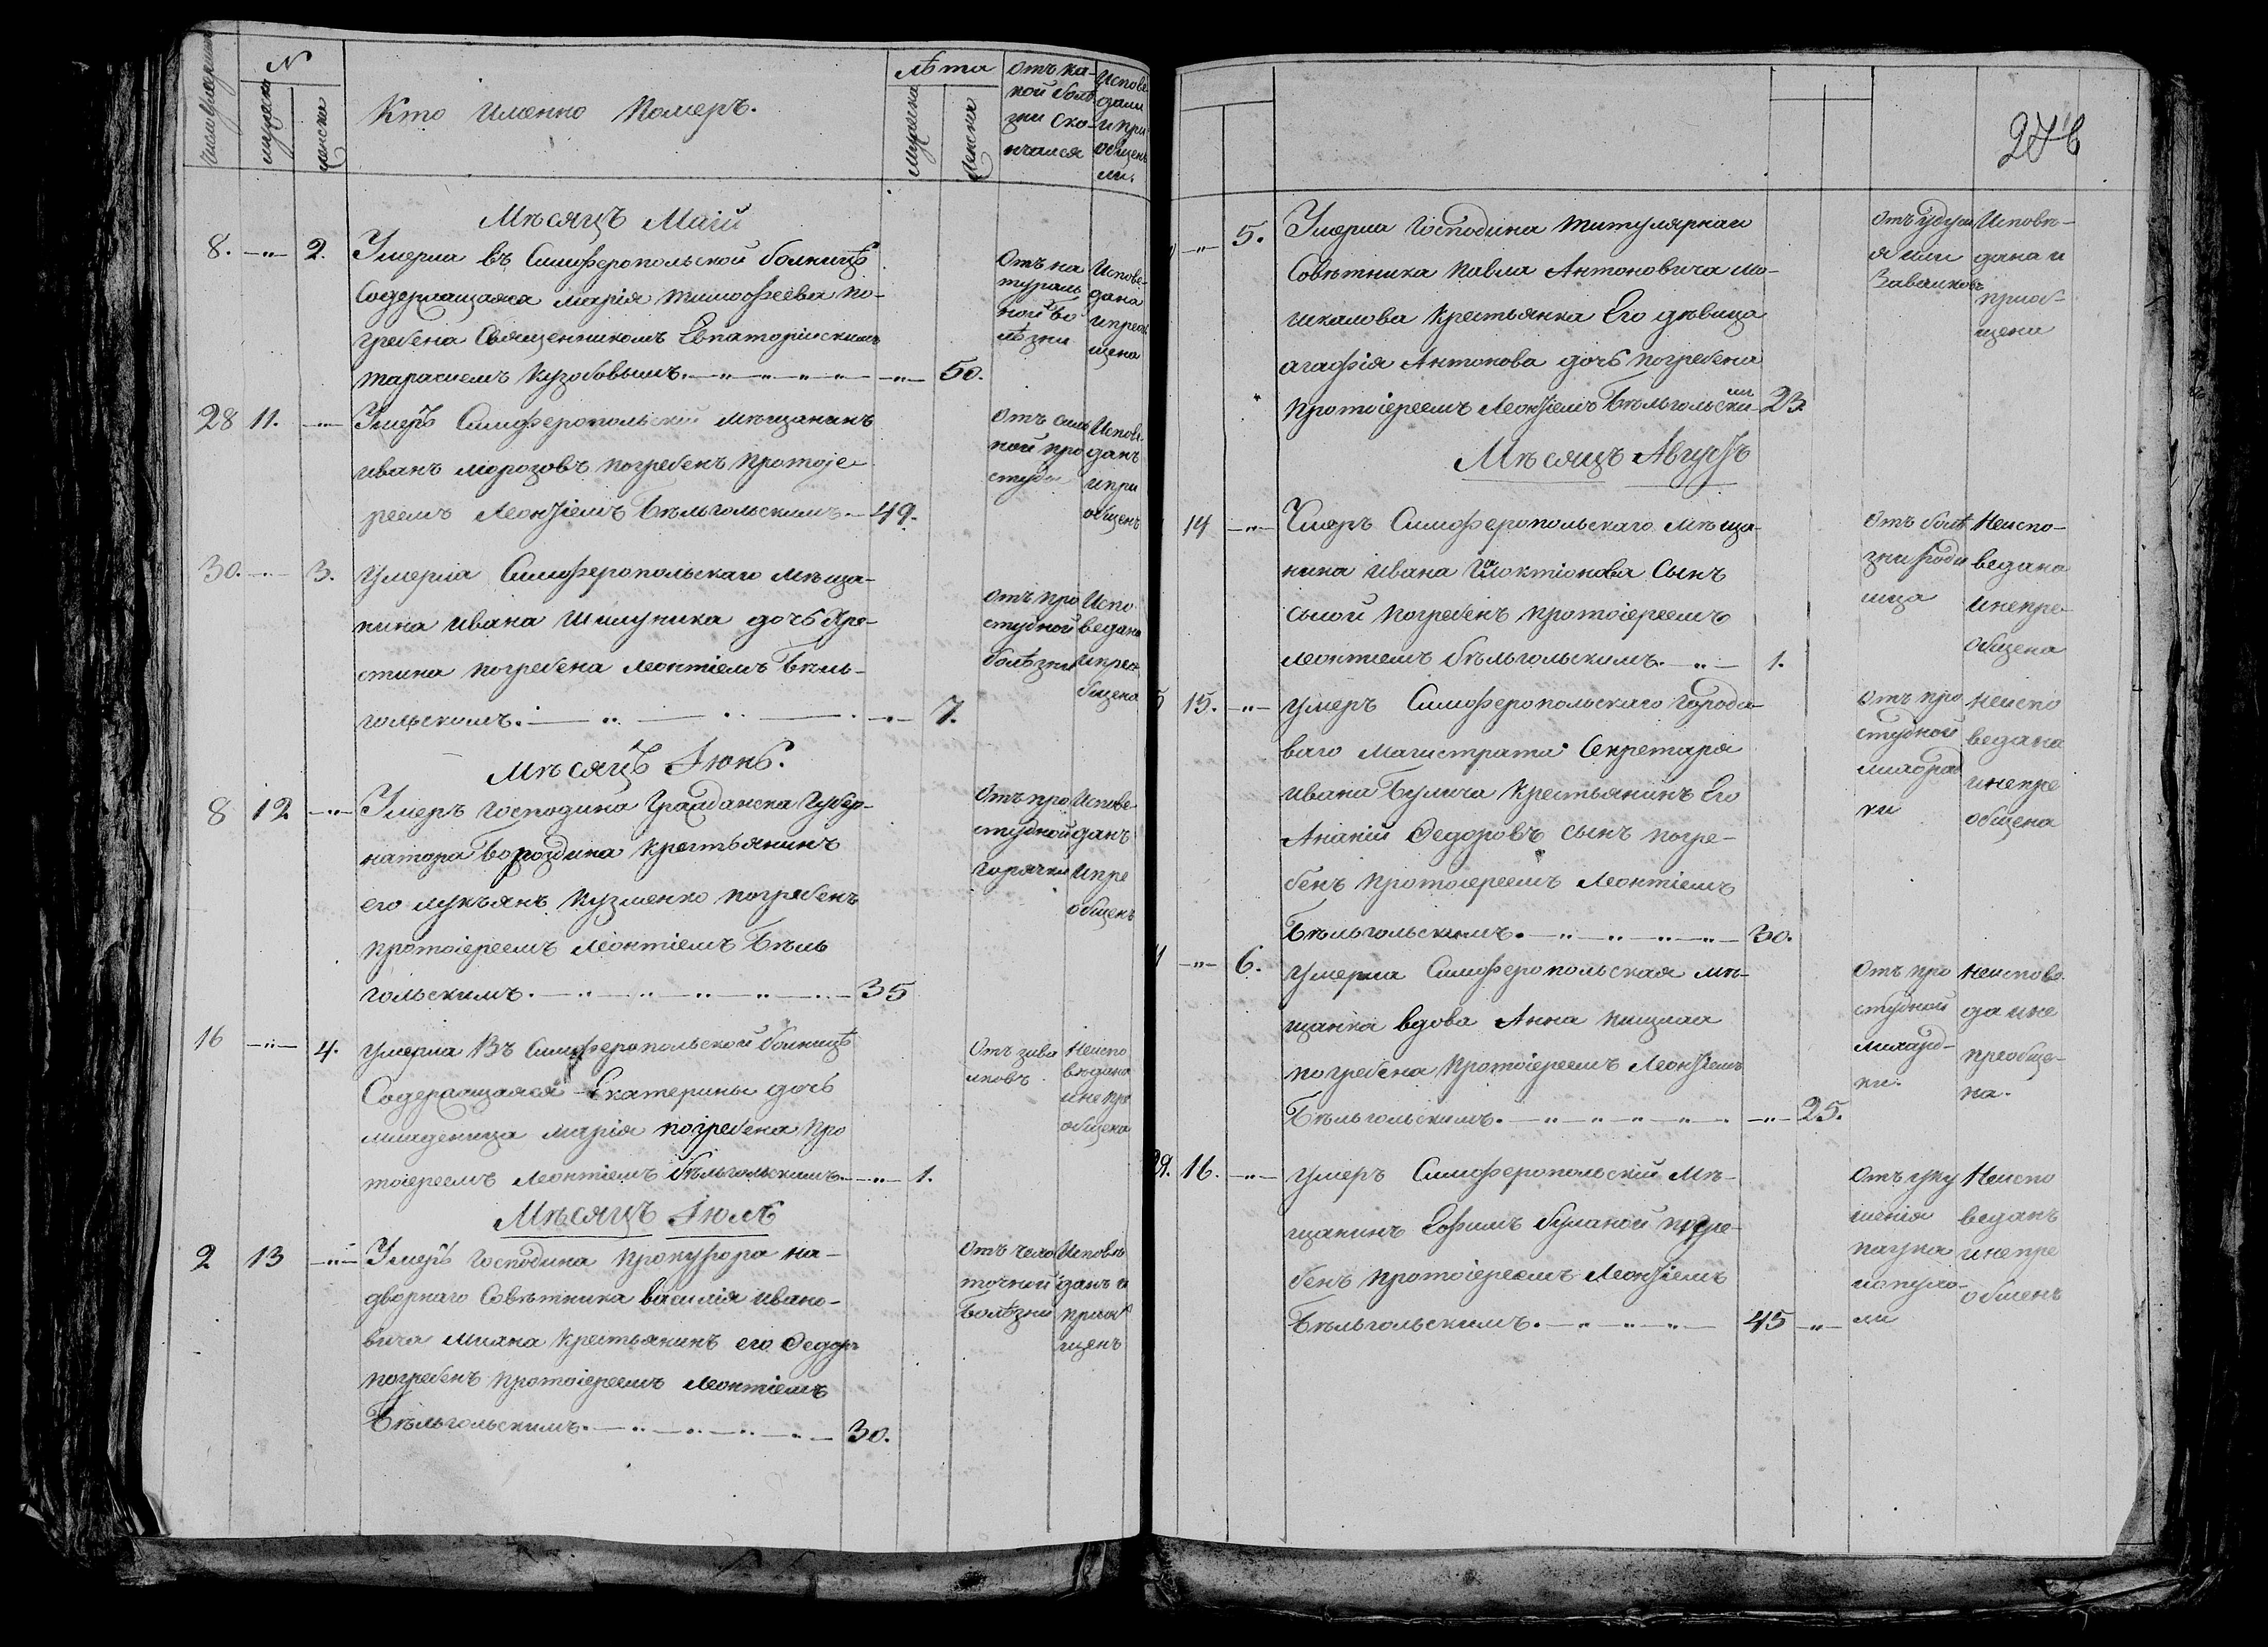 N
мужеска
женска
Кто именно померъ.
лѣта
мужеска
женска
отъ ка-
кой болѣ
зни ско-
нчался
испове
дали
и при
общены
ли.
Мѣсяцъ Маій
8. — 2. Умерла въ Симферопольской болницѣ
содержащаяся марія тимофеева по-
гребена священникомъ Евпаторійскимъ
тарасіемъ — 50.
отъ на
тураль
ной бо
лѣзни
испове-
дана
и преоб
щена
28 11. — Умеръ Симферопольский мѣщанинъ
иванъ морозовъ погребенъ протоіе
реемъ Леонтіемъ Бѣльгольскимъ. — 49.
отъ силь
ной про
студы
испове
данъ
и при
общенъ
30. — 3. умерла Симферопольскаго мѣща-
нина ивана дочь Хри-
стина погребена леонтіемъ Бѣль-
гольскимъ. — 7.
отъ про
студной
болѣзни
испо
ведана
и прео
бщена
Мѣсяцъ Іюнь.
8 12 — Умеръ господина Гражданска Губер-
натора Бороздина крестьянинъ
его лукъянъ кузменко погребенъ
протоіереемъ леонтіемъ Бѣль
гольскимъ. — 35
отъ про
студной
горячки
испове
данъ
и пре
общенъ
16 — 4. умерла въ Симферопольской болницѣ
Содержащаяся Екатерины дочь
младеница марія погребена про
тоіереемъ леонтіемъ бѣльгольскимъ. — 1.
отъ
неиспо
вѣдана
и не пр
общена
Мѣсяцъ Іюль
2 13 — Умеръ господина прокурора на-
дворнаго Совѣтника василія ивано-
вича крестьянинъ его Федоръ
погребенъ протоіереемъ леонтіемъ
Бѣльгольскимъ. — 30.
отъ чехо
точной
Болѣзни
исповѣ
данъ и
приоб
щенъ
276
— 5. Умерла господина титулярнаго
Совѣтника павла Антоновича
крестьянка Его дѣвица
агафія Антонова дочь погребена
протоіереемъ Леонтіемъ Бѣльгольскимъ 23
отъ удуш
я или
Завалковъ
Исповѣ-
дана и
приоб-
щена
Мѣсяцъ Августъ
14 — Умеръ Симферопольскаго мѣща-
нина ивана сынъ
погребенъ протоіереемъ
леонтіемъ бѣльгольскимъ. — 1.
отъ болѣ
зни
неиспо-
ведана
и непре
общена
15. — умеръ Симферопольскаго городо-
ваго магистрата Секретаря
ивана Булича крестьянинъ Его
Ананій Федоровъ сынъ погре-
бенъ протоіереемъ леонтіемъ
Бѣльгольскимъ. — 30.
отъ про
студной
лихорад
ки
неиспо
ведана
и непре
общена
— 6. умерла Симферопольская мѣ-
щанка вдова Анна
погребена протоіереемъ Леонтіемъ
Бѣльгольскимъ. — 25.
отъ про
студной
лихорад-
ки.
неиспове
да и не
преобще-
на.
29. 16. — умеръ Симферопольскій Мѣ-
щанинъ Ефимъ погре-
бенъ протоіереемъ Леонтіемъ
Бѣльгольскимъ. — 45 —
отъ уку
шенія
паука
неиспо
веданъ
и непре
общенъ